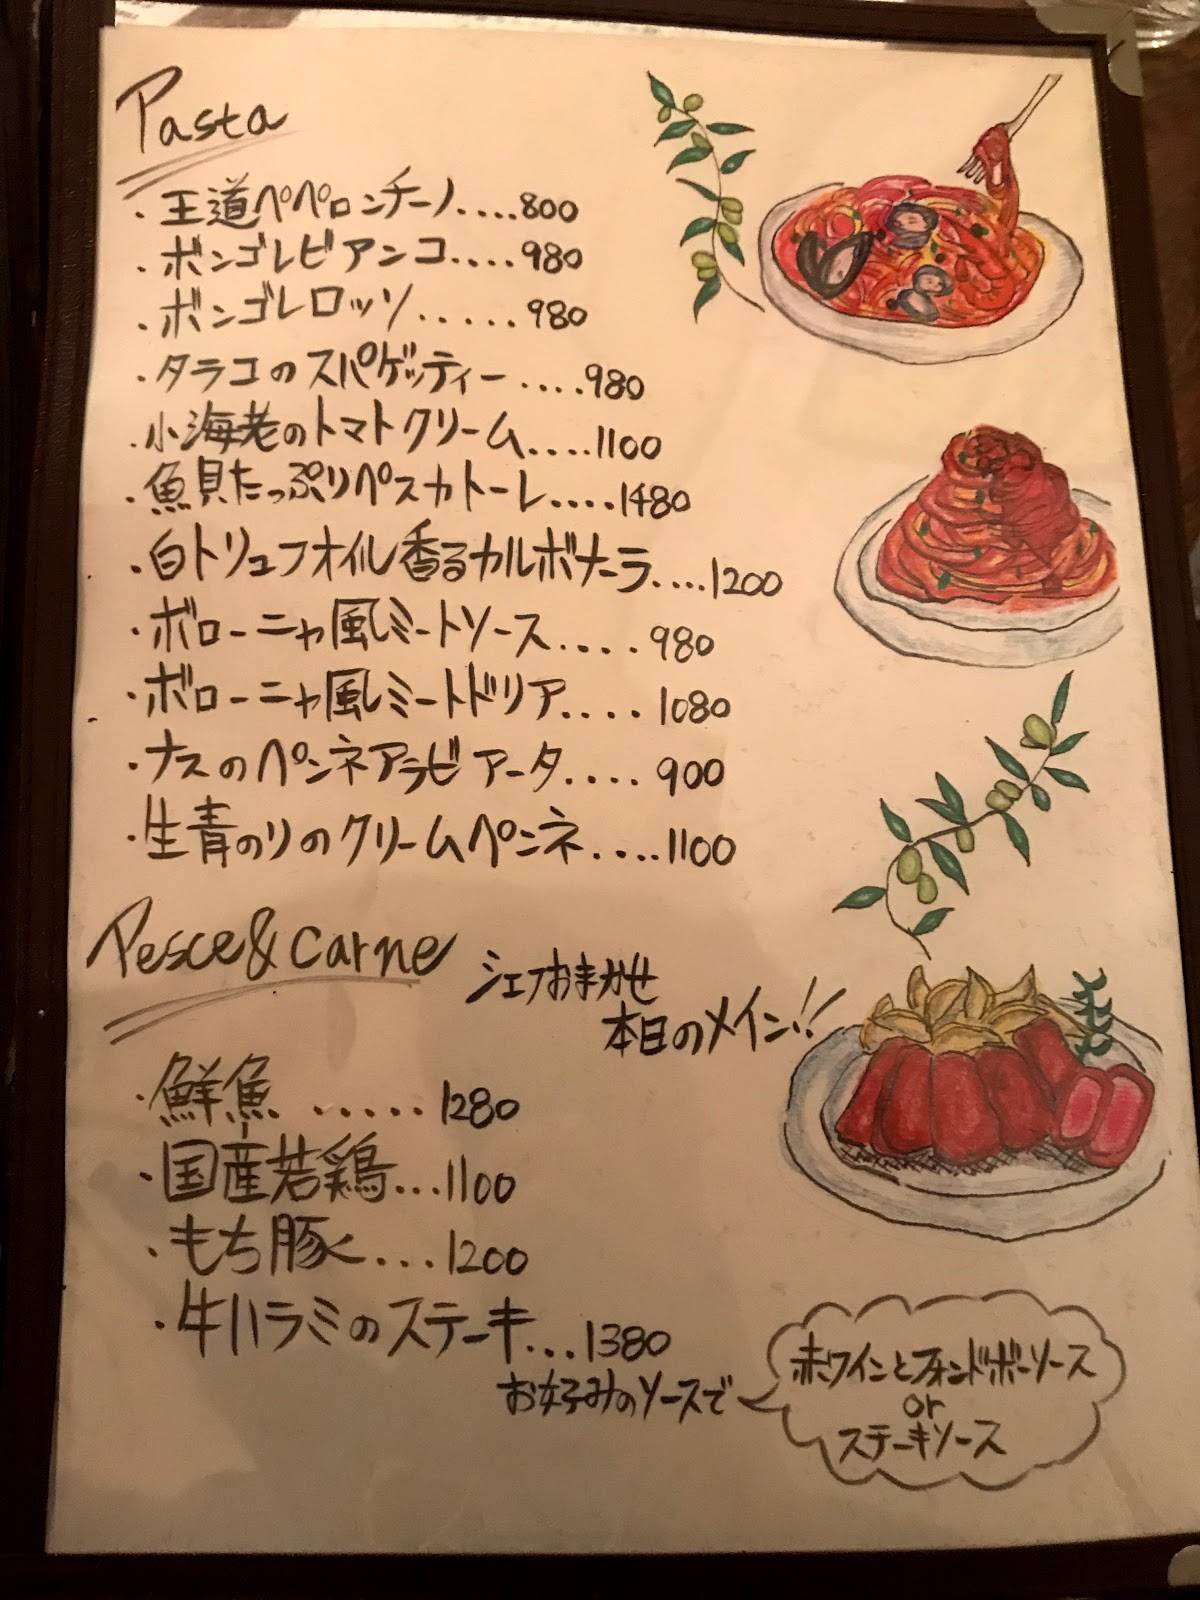 Pasta
・王道ペペロンチーノ....800
・ボンゴレビアンコ....980
・ボンゴレロッソ.....980
・タラコのスパゲッティー....980
・小海老のトマトクリーム....1100
・魚貝たっぷりペスカトーレ....1480
・白トリュフオイル香るカルボナーラ....1200
・ボローニャ風ミートソース....980
・ボローニャ風ミートドリア....1080
・ナスのペンネアラビアータ....900
・生青のりのクリームペンネ....1100
Pesce&Carne
シェフおまかせ
本日のメイン!!
・鮮魚.....1280
・国産若鶏...1100
・もち豚...1200
・牛ハラミのステーキ...1380
お好みのソースで
赤ワインとフォンドボーソース
or
ステーキソース